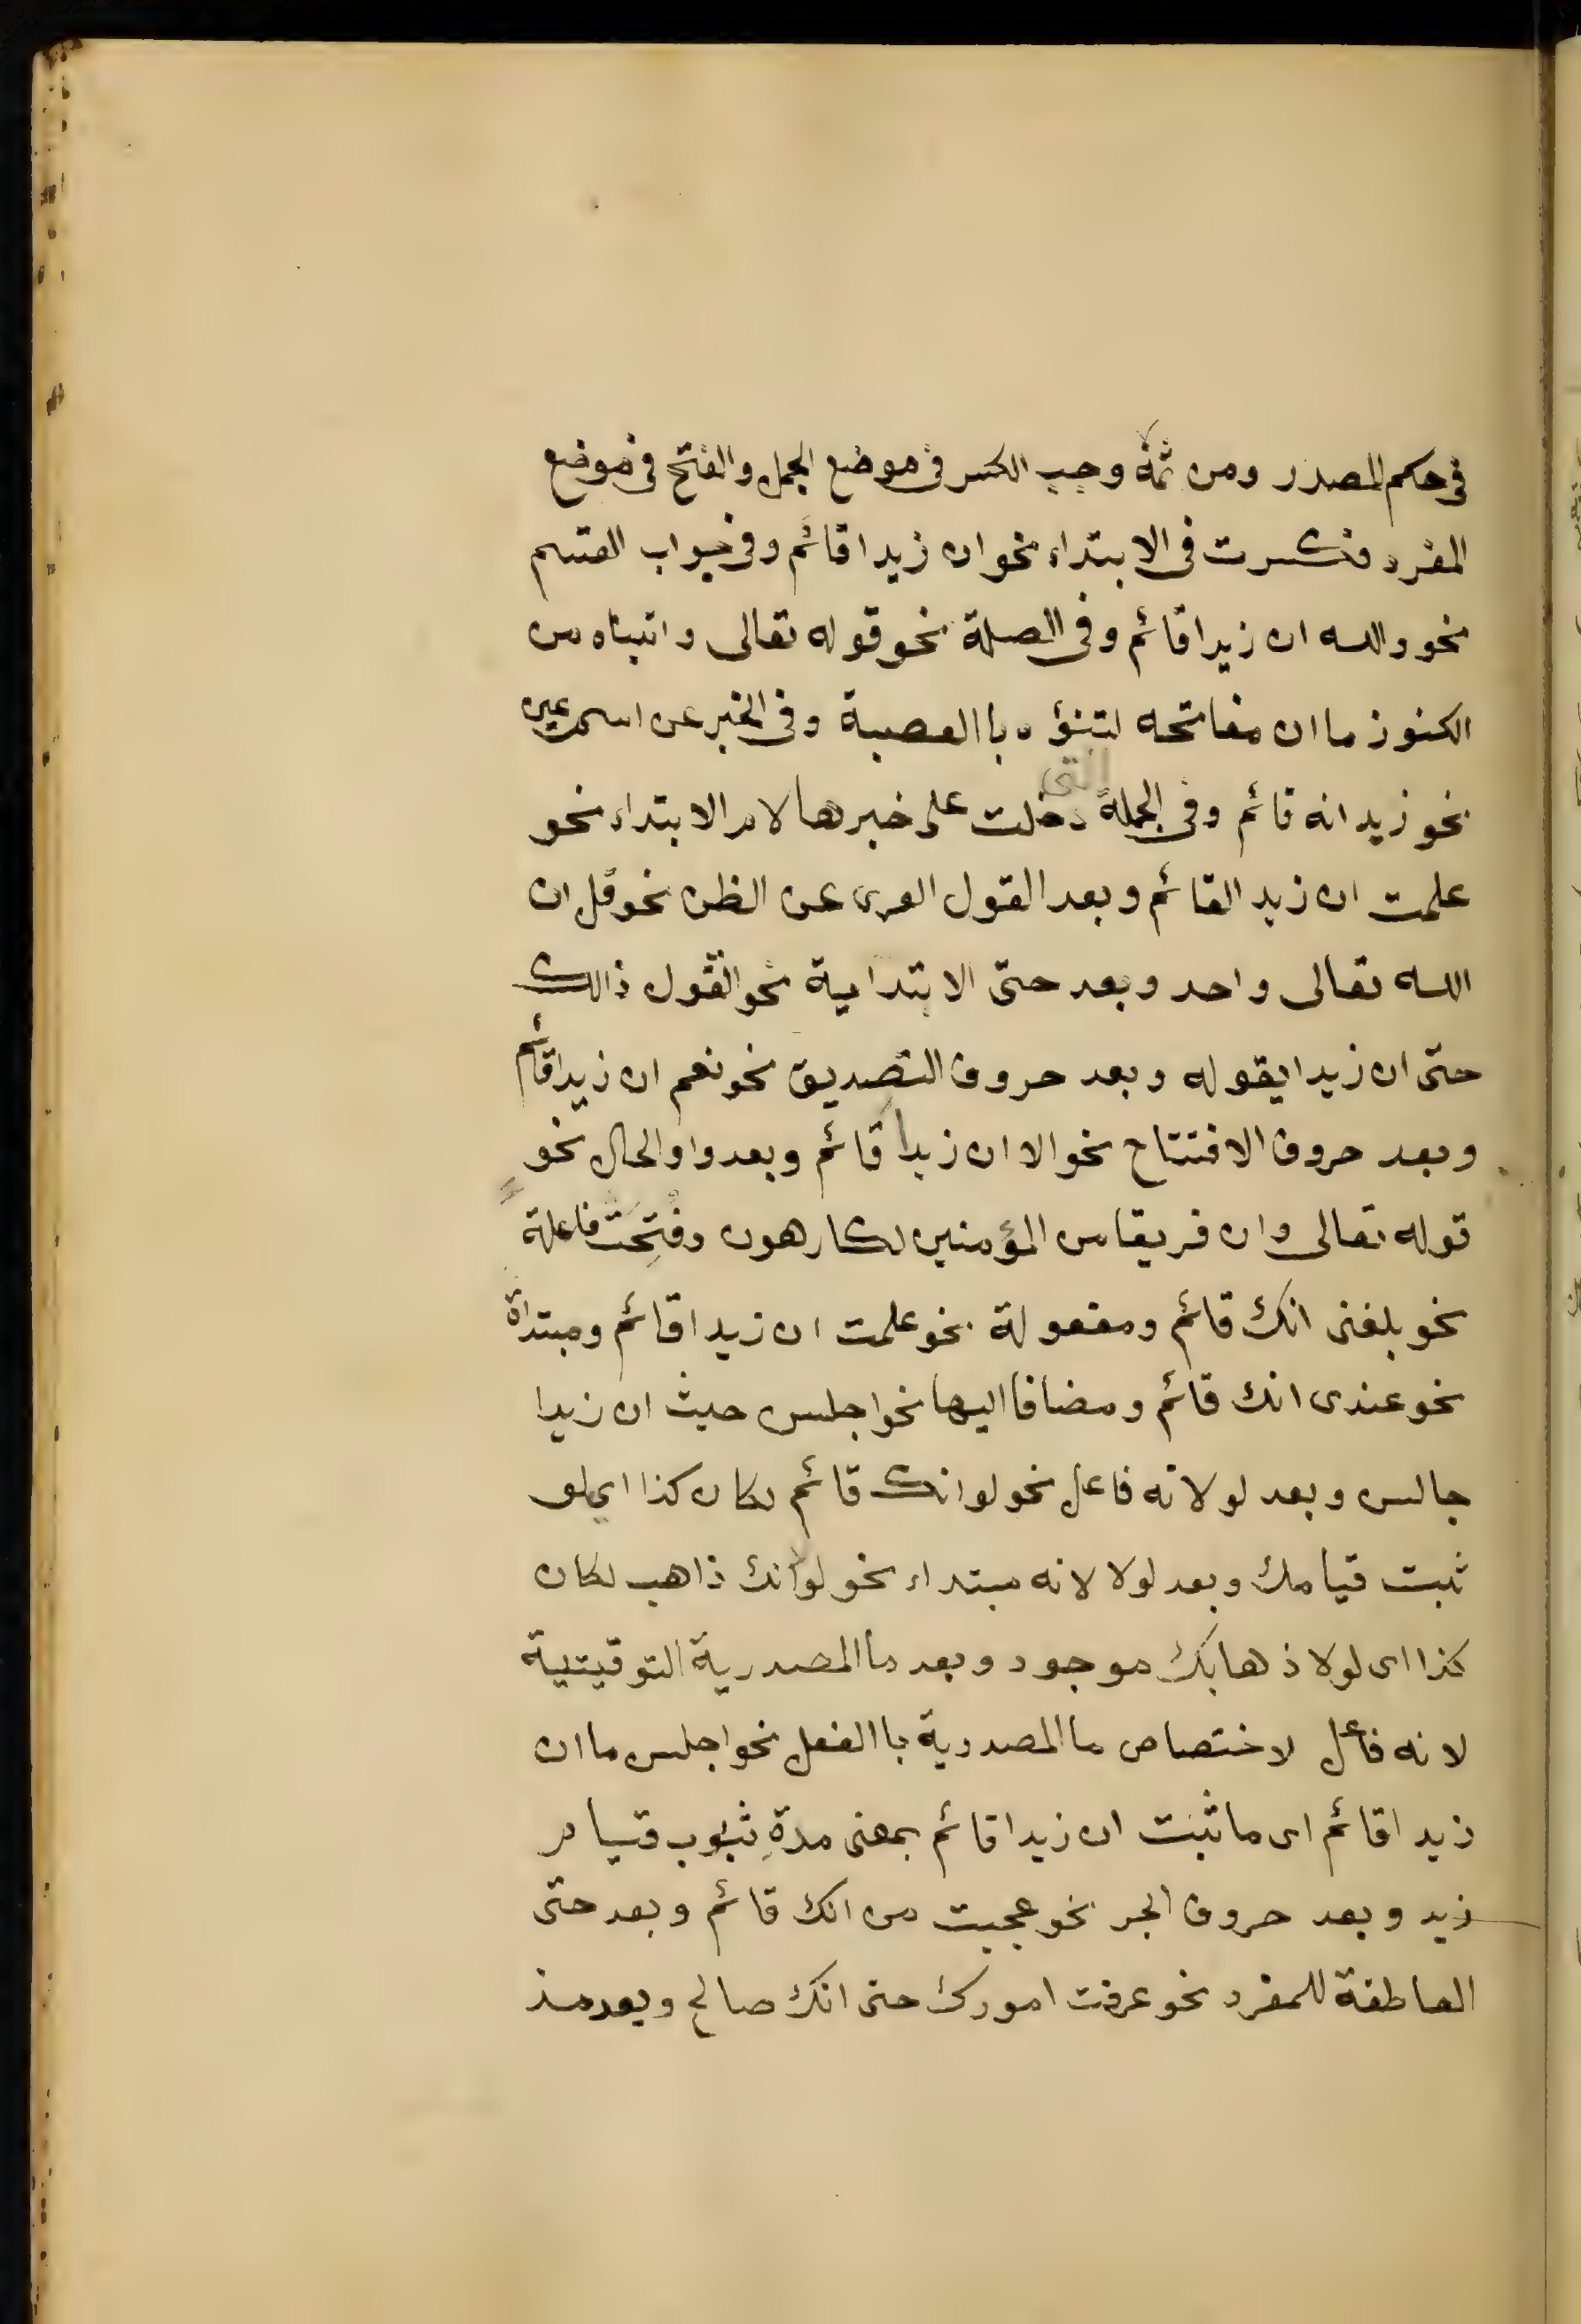 فى حكم المصدر ومن ثمة وجب الكسر فى موضع الجمل والفتح فى موضع
المفرد فكسرت فى الابتداء نحو ان زيدا قائم وفى جواب القسم
نحو والله ان زيدا قائم وفى الصلة نحو قوله تعالى واتيناه من
الكنوز ما ان مفاتحه لتنؤه باالعصبة وفى الخبر عن اسم عين
نحو زيد انه قائم وفى الجملة التى دخلت على خبرها لام الابتداء نحو
علمت ان زيد القائم وبعد القول العرى عن الظن نحو قل ان
الله تعالى واحد وبعد حتى الابتدائية نحو اتقول ذالك
حتى ان زيدا يقوله وبعد حروف التصديق نحو نعم ان زيدا قائم
وبعد حروف الافتتاح نحو الا ان زيدا قائم وبعد واو الحال نحو
قوله تعالى وان فريقا من المؤمنين لكارهون وفُتِحَتْ فاعلة
نحو بلغنى انك قائم ومفعولة نحو علمت ان زيدا قائم ومبتدأة
نحو عندى انك قائم ومضافا اليها نحو اجلس حيث ان زيدا
جالس وبعد لو لانه فاعل نحو لو انك قائم لكان كذا اى لو
ثبت قيامك وبعد لولا لانه مبتداء نحو لولا انك ذاهب لكان
كذا اى لولا ذهابك موجود وبعد ما المصدرية التوقيتية
لانه فاعل لاختصاص ما المصدرية باالفعل نحو اجلس ما ان
زيدا قائم اى ما ثبت ان زيدا قائم بمعنى مدةِ ثبوب قيام
زيد وبعد حروف الجر نحو عجبت من انك قائم وبعد حتى
العاطفة للمفرد نحو عرفت امورك حتى انك صالح وبعد مذ